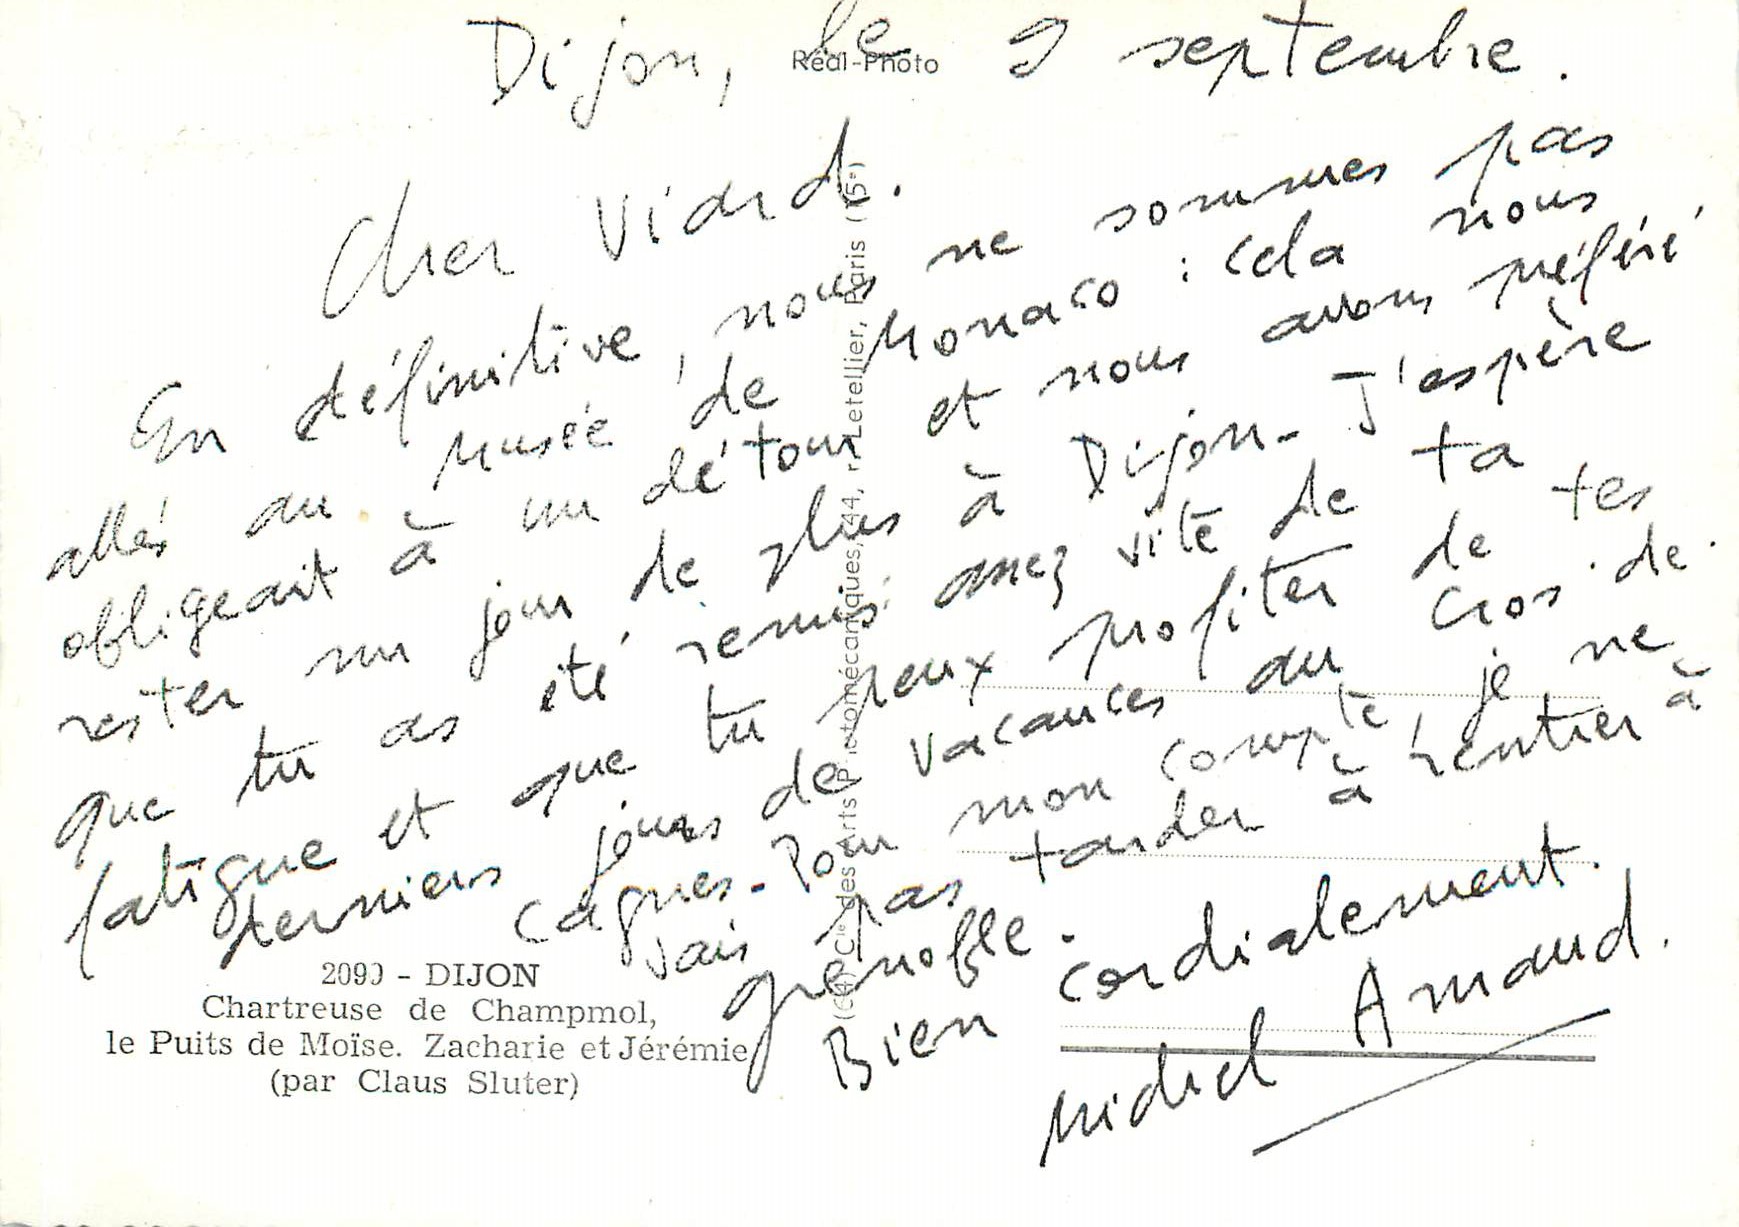 Dijon, le 9 septembre.
Réal-Photo
Cher Viard.
En définitive, nous ne sommes pas
allés au Musée de Monaco : cela nous
obligeait à un détour et nous avons préféré
rester un jour de plus à Dijon - J'espère
que tu as été remis assez vite de ta
fatigue et que tu peux profiter de tes
derniers jours de vacances au Cros-de-
Cagnes - Pour mon compte je ne
vais pas tarder à rentrer à
Grenoble.
Bien cordialement.
Michel Armand.
des Arts Photomécaniques, 44, r. Letellier, Paris (15e)
2090 - DIJON
Chartreuse de Champmol,
le Puits de Moïse. Zacharie et Jérémie
(par Claus Sluter)